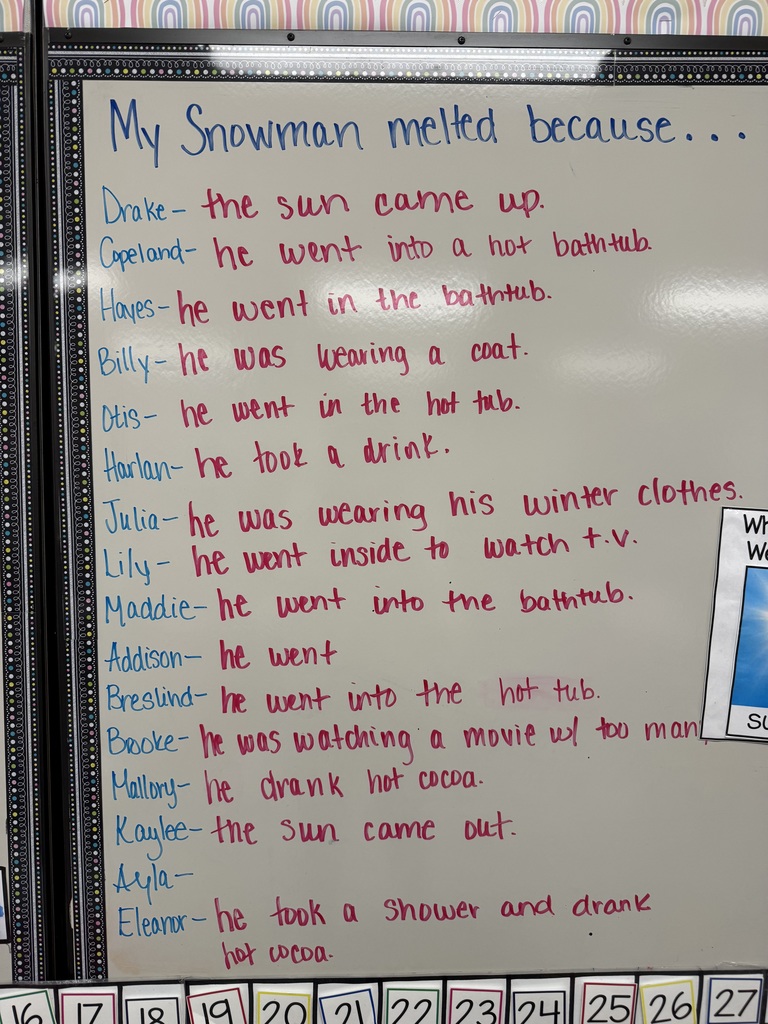 My Snowman melted because...
Drake- the sun came up.
Copeland- he went into a hot bathtub.
Hayes- he went in the bathtub.
Billy- he was wearing a coat.
Otis- he went in the hot tub.
Harlan- he took a drink.
Julia- he was wearing his winter clothes.
Lily- he went inside to watch t.v.
Maddie- he went into the bathtub.
Addison- he went
Breslind- he went into the hot tub.
Brooke- he was watching a movie w/ too man
Mallory- he drank hot cocoa.
Kaylee- the sun came out.
Ayla-
Eleanor- he took a shower and drank
hot cocoa.
Wh
We
SU
16 17 18 19 20 21 22 23 24 25 26 27